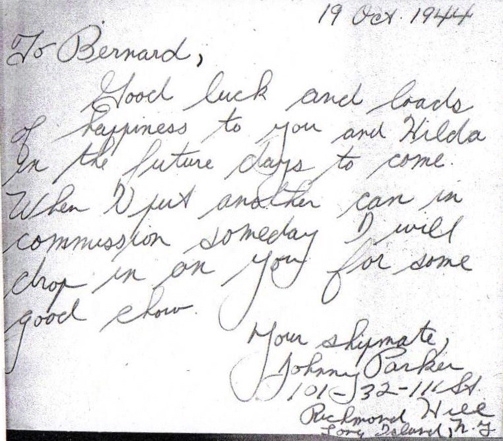 19 Oct. 1944
To Bernard,
Good luck and loads
of happiness to you and Hilda
in the future days to come.
When I put another can in
commission someday I will
drop in on you for some
good chow.
Your shipmate,
Johnny Parker
101-32-111 St.
Richmond Hill
Long Island, N.Y